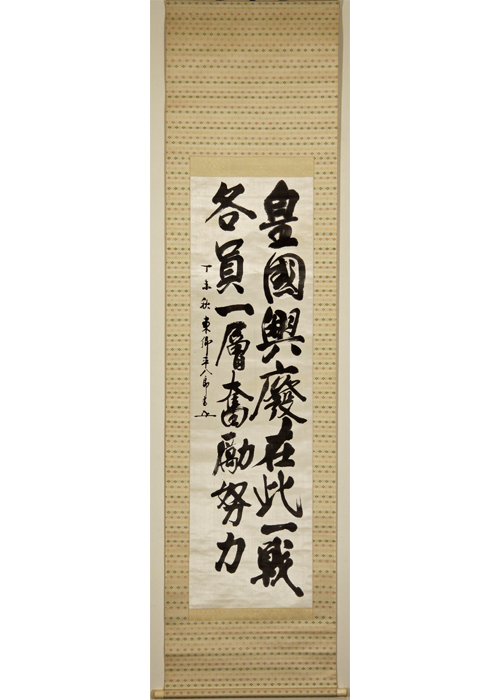 皇國興廢在此一戰
各員一層奮勵努力
丁未秋 東郷平八郎書